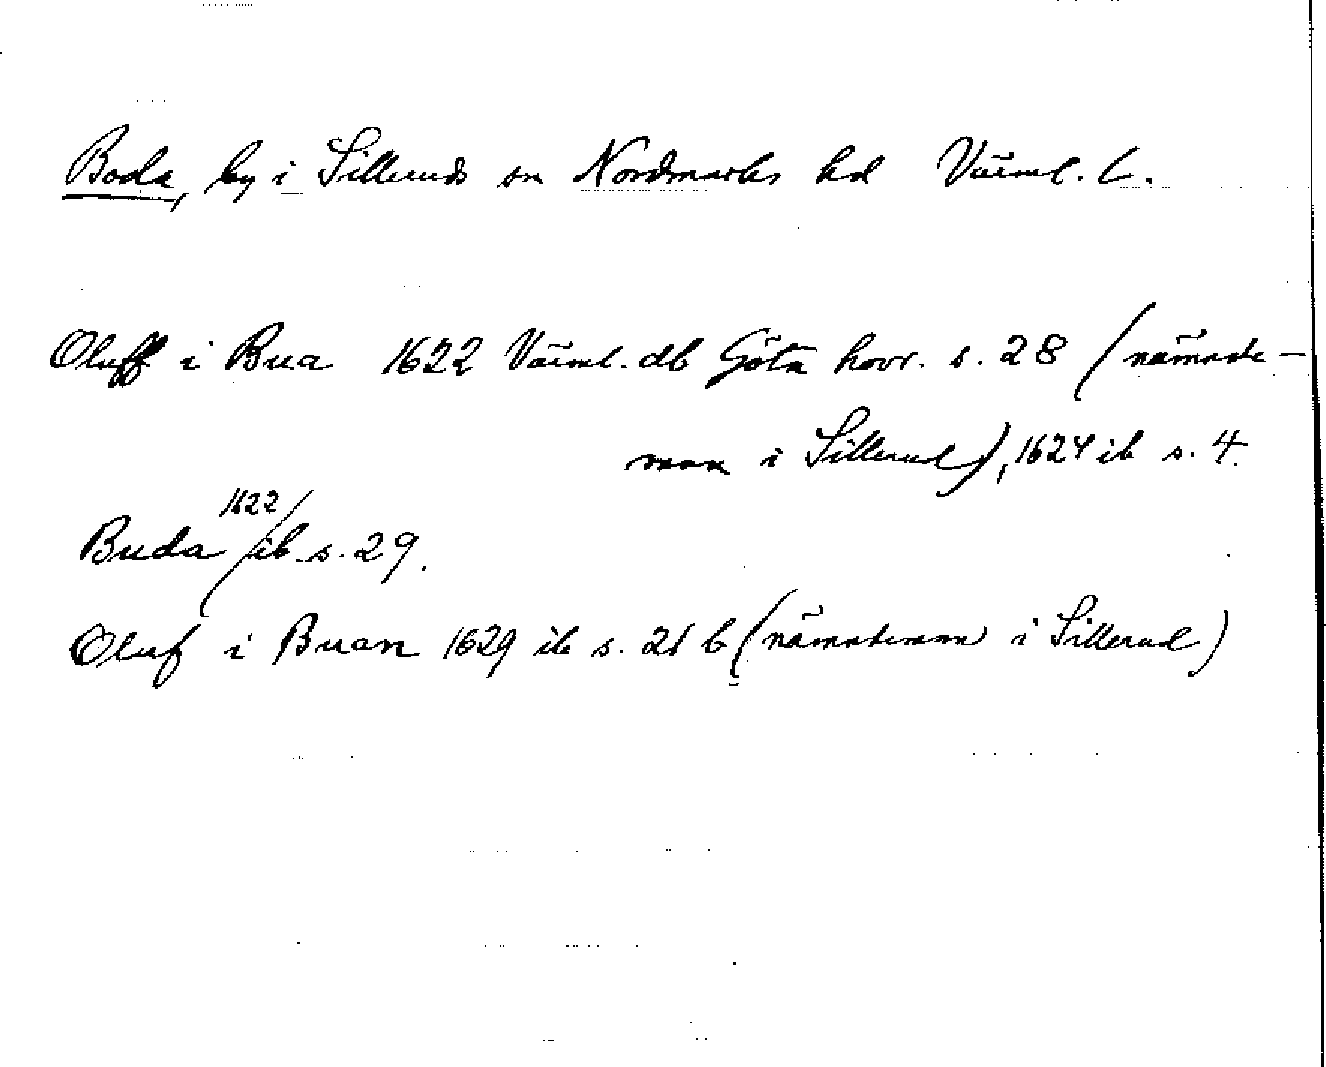 Boda, by i Silleruds sn Nordmarks hd Värml. l.
Oluff i Bua 1622 Värml. db Göta hovr. s. 28 (nämnde-
man i Sillerud), 1624 ib s. 4.
Buda 1622 ib s. 29.
Oluf i Buan 1629 ib s. 21 b (nämndeman i Sillerud)